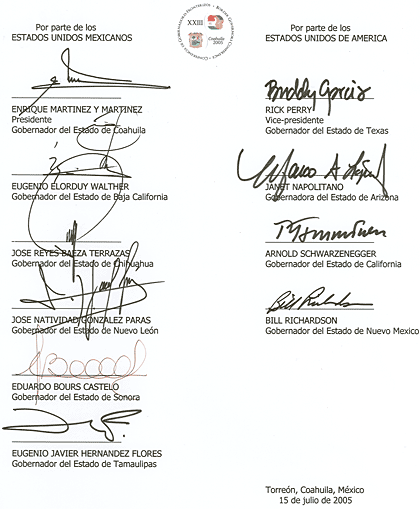 XXIII
Coahuila
2005
Por parte de los
ESTADOS UNIDOS MEXICANOS
ENRIQUE MARTINEZ Y MARTINEZ
Presidente
Gobernador del Estado de Coahuila
EUGENIO ELORDUY WALTHER
Gobernador del Estado de Baja California
JOSE REYES BAEZA TERRAZAS
Gobernador del Estado de Chihuahua
JOSE NATIVIDAD GONZALEZ PARAS
Gobernador del Estado de Nuevo León
EDUARDO BOURS CASTELO
Gobernador del Estado de Sonora
EUGENIO JAVIER HERNANDEZ FLORES
Gobernador del Estado de Tamaulipas
Por parte de los
ESTADOS UNIDOS DE AMERICA
Buddy Garcia
RICK PERRY
Vice-presidente
Gobernador del Estado de Texas
JANET NAPOLITANO
Gobernadora del Estado de Arizona
ARNOLD SCHWARZENEGGER
Gobernador del Estado de California
Bill Richardson
BILL RICHARDSON
Gobernador del Estado de Nuevo Mexico
Torreón, Coahuila, México
15 de julio de 2005